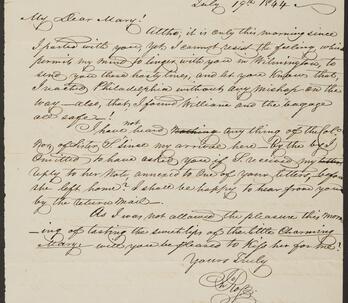 July 19th 1844
My Dear Mary!
Altho, it is only this morning since
I parted with you, yet I cannot resist the feeling which
permits my mind to linger with you in Wilmington, to
send you these hasty lines, and let you know that,
I reached Philadelphia without any mishap on the
way - also, that I found William and the baggage
all safe!
I have not heard nothing any thing of the Col
nor of since my arrival here - by the bye I
Omitted to have asked you if received my letter
reply to her Note annexed to One of your letters, before
she left home? I shall be happy to hear from you
by the return Mail -
As I was not allowed the pleasure this mor-
-ning of tasting the sweet lips of the little Charming
Mary, will you be pleased to Kiss her for me?
Yours Truly